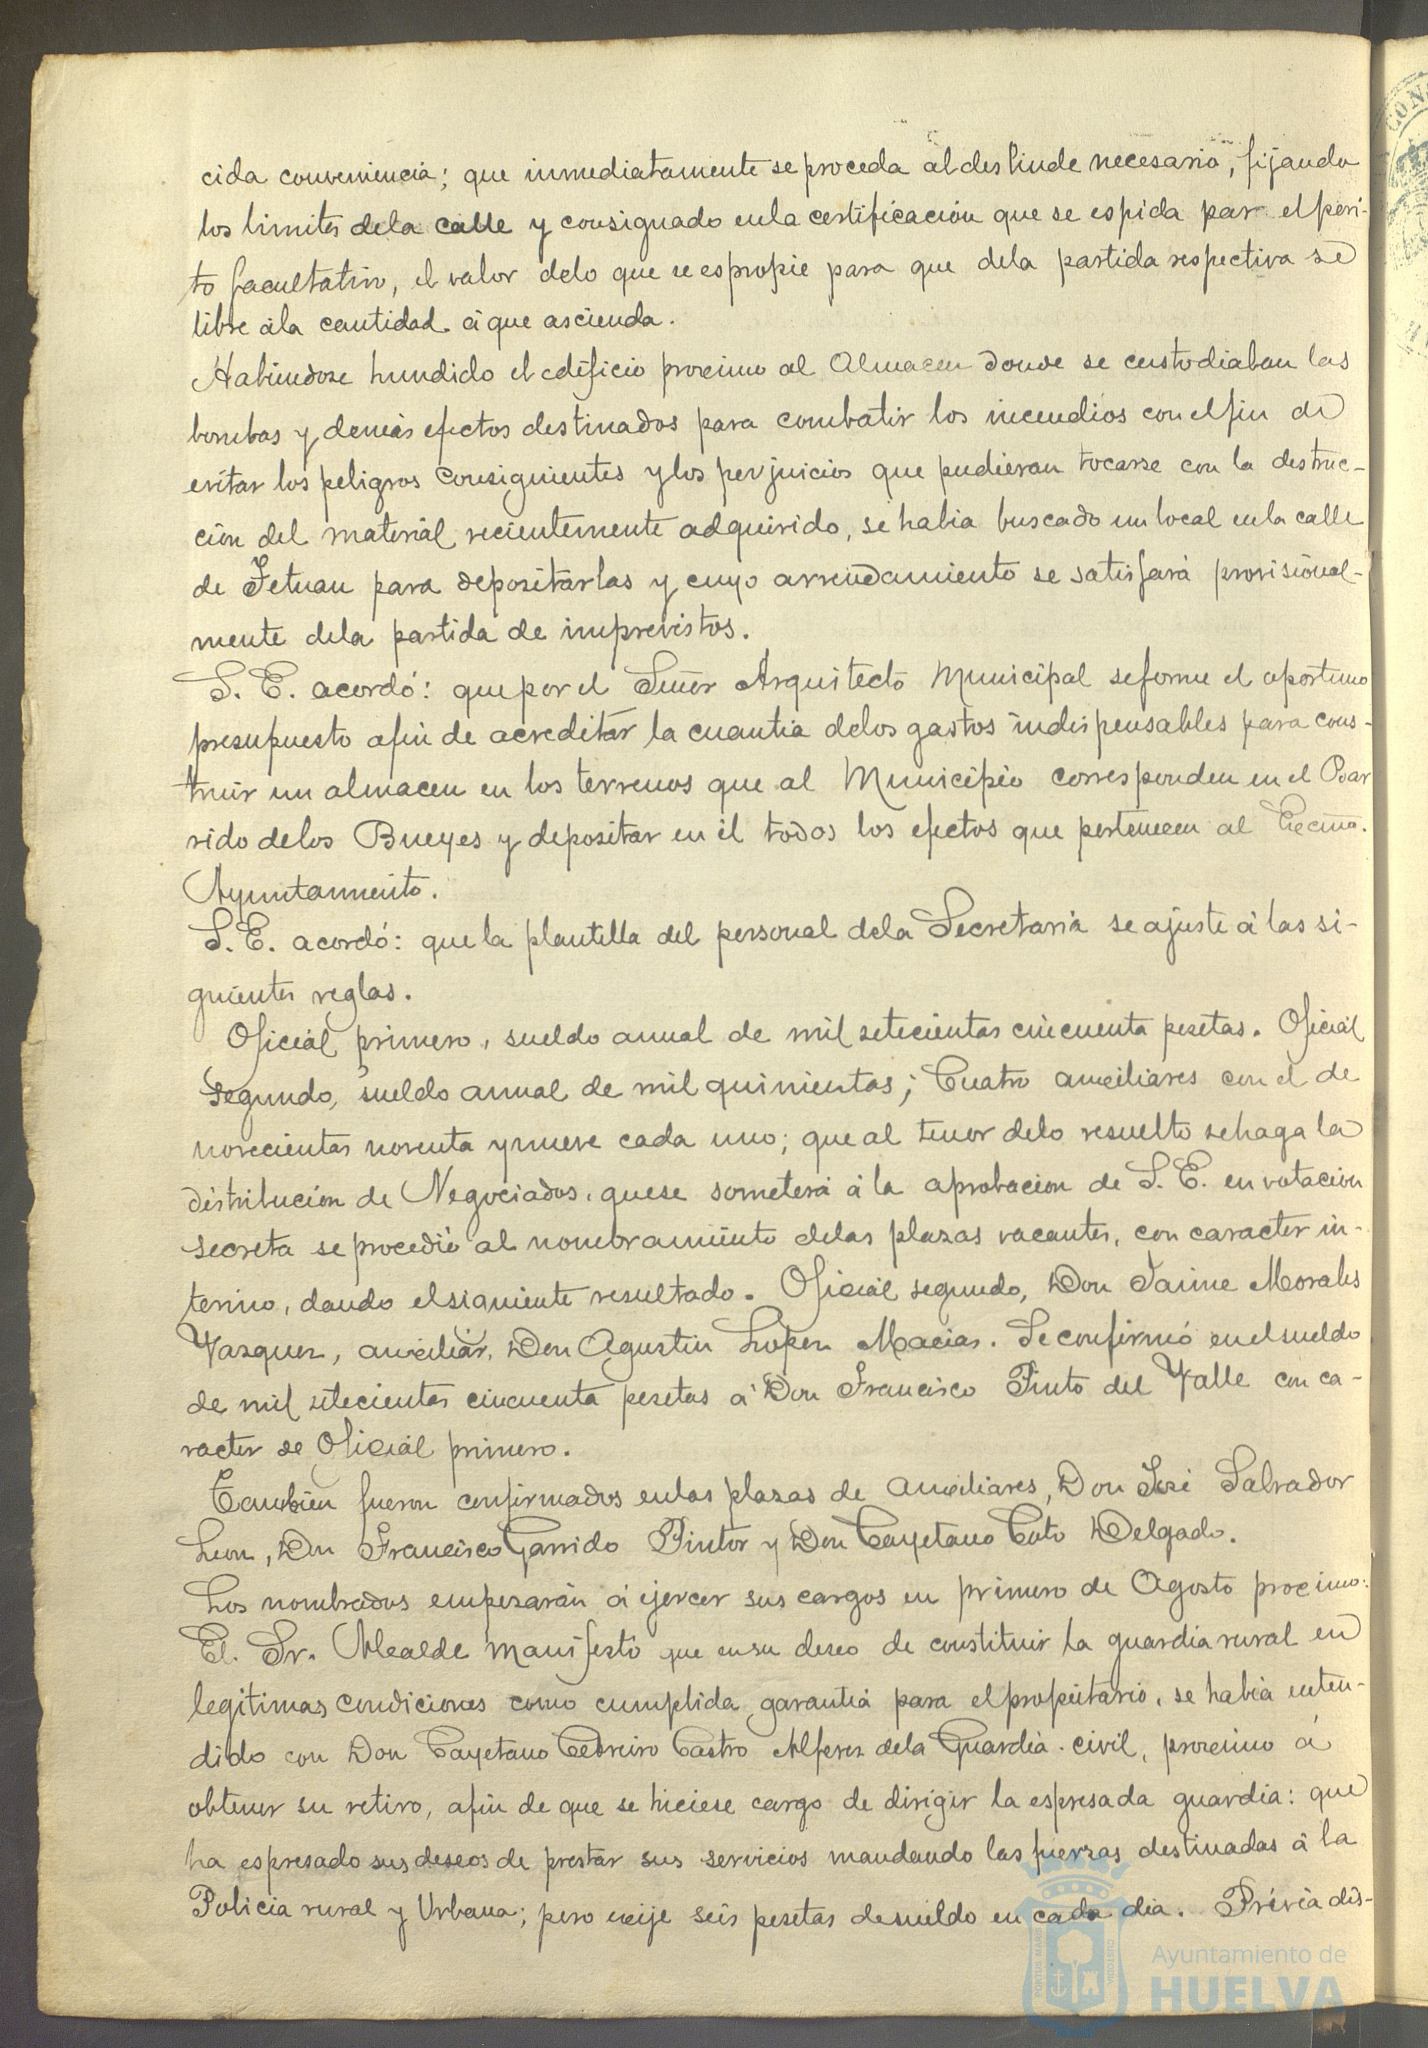 cida conveniencia; que inmediatamente se proceda al deslinde necesario, fijando
los limites dela calle y consignado enla certificación que se espida por el peri-
to facultativo, el valor delo que se espropie para que dela partida respectiva se
libre ála cantidad á que ascienda.
Habiendose hundido el edificio proximo al Almacen donde se custodiaban las
bombas y demás efectos destinados para combatir los incendios con el fin de
evitar los peligros consiguientes y los perjuicios que pudieran tocarse con la destruc-
ción del material recientemente adquirido, se habia buscado un local enla calle
de Tetuan para depositarlas y cuyo arrendamiento se satisfará provisional-
mente dela partida de imprevistos.
S. E. acordó: que por el Señor Arquitecto Municipal se forme el oportuno
presupuesto afin de acreditar la cuantia delos gastos indispensables para cons-
truir un almacen en los terrenos que al Municipio corresponden en el Bar
rido delos Bueyes y depositar en él todos los efectos que pertenecen al Excmo.
Ayuntamiento.
S. E. acordó: que la plantilla del personal dela Secretaria se ajuste á las si-
guientes reglas.
Oficial primero, sueldo anual de mil setecientas cincuenta pesetas. Oficial
segundo, sueldo anual de mil quinientas; Cuatro auxiliares con el de
novecientas noventa y nueve cada uno; que al tenor delo resuelto se haga la
distribución de Negociados, que se someterá á la aprobacion de S. E. en votacion
secreta se procedió al nombramiento delas plazas vacantes, con caracter in-
terino, dando el siguiente resultado. Oficial segundo, Don Jaime Morales
Vazquez, auxiliar, Don Agustin Lopez Macias. Se confirmó en el sueldo
de mil setecientas cincuenta pesetas á Don Francisco Pinto del Valle con ca-
racter de Oficial primero.
Tambien fueron confirmados enlas plazas de Auxiliares, Don José Salvador
Leon, Don Francisco Garrido Pintor y Don Cayetano Coto Delgado.
Los nombrados empezarán á ejercer sus cargos en primero de Agosto proximo.
El Sr. Alcalde manifestó que en su deseo de constituir la guardia rural en
legitimas condiciones como cumplida garantia para el propietario, se habia enten-
dido con Don Cayetano Cebreiro Castro Alferez dela Guardia civil, proximo á
obtener su retiro, afin de que se hiciese cargo de dirigir la espresada guardia: que
ha espresado sus deseos de prestar sus servicios mandando las fuerzas destinadas á la
Policia rural y Urbana; pero exije seis pesetas de sueldo en cada dia. Prévia dis-
Ayuntamiento de
HUELVA